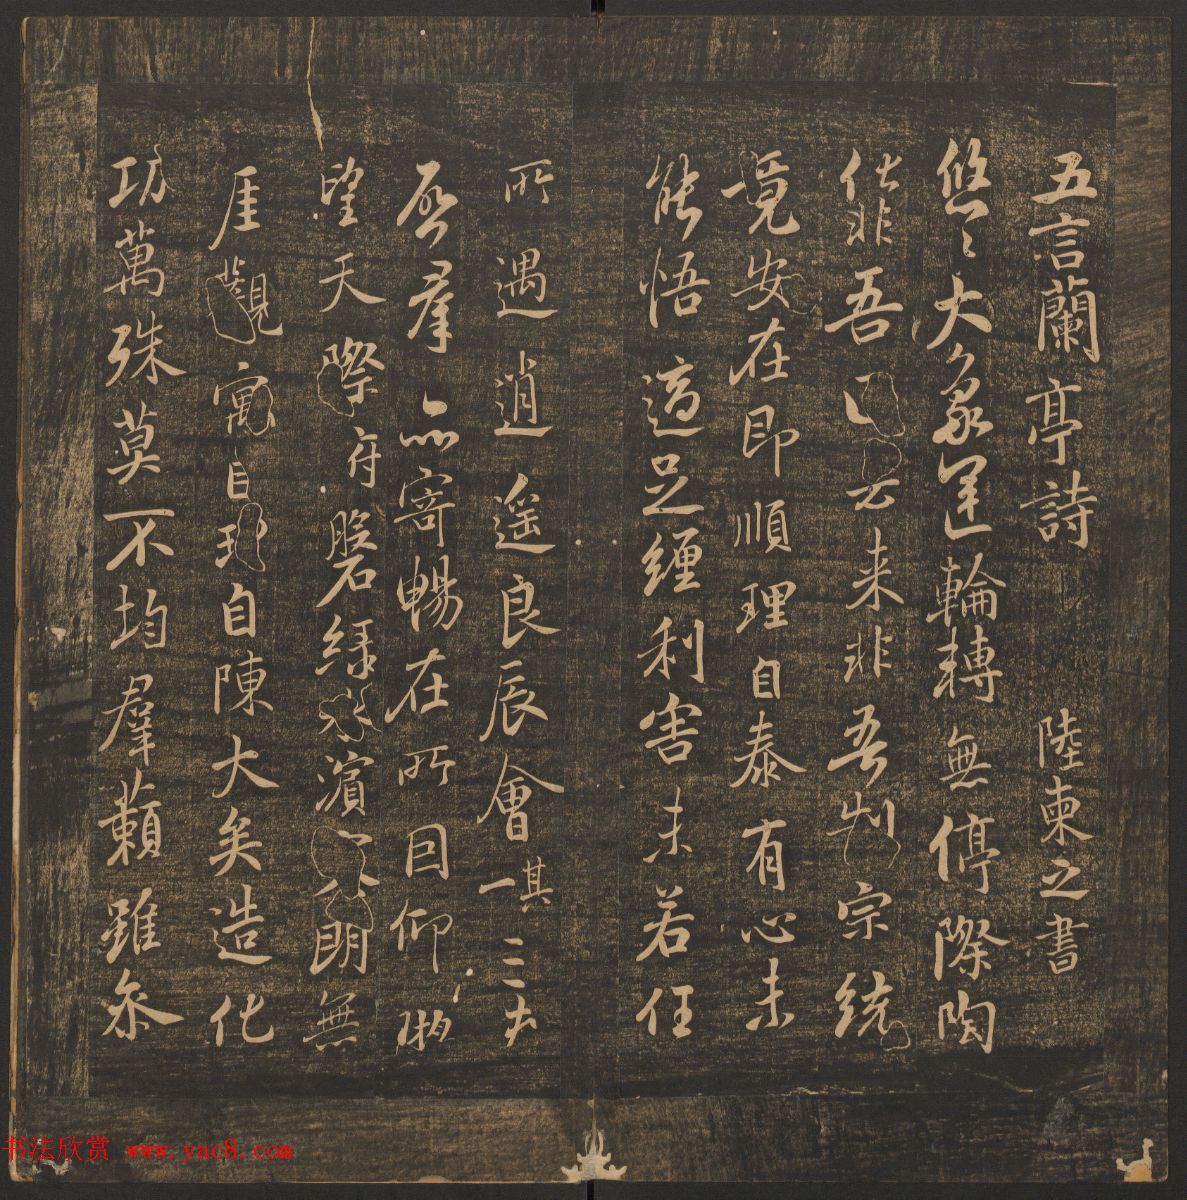 五言蘭亭詩 陸柬之書
悠〻大象運輪轉無停際陶
化非吾因去来非吾制宗統
竟安在即順理自泰有心未
能悟適足纏利害未若任
所遇逍遥良辰會其一 三春
啓羣品寄暢在所因仰眺
望天際府磐緑水濱寥朗無
厓觀寓目理自陳大矣造化
功萬殊莫不均羣籟雖參
书法欣赏 www.yac8.com